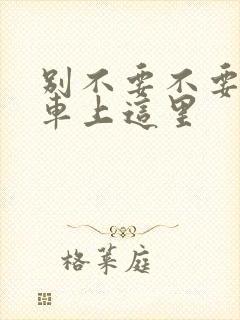 別不要不要
車上這里
格萊庭